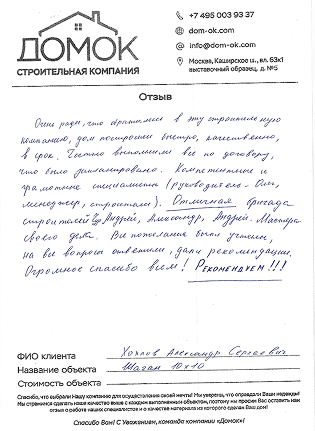 ДОМОК
СТРОИТЕЛЬНАЯ КОМПАНИЯ
+7 495 003 93 37
dom-ok.com
info@dom-ok.com
Москва, Каширское ш., вл. 63к1
выставочный образец, д. №5
Отзыв
Очень рады, что обратились в эту строительную
компанию, дом построили быстро, качественно,
в срок. Честно выполнили все по договору,
что было запланировано. Компетентные и
грамотные специалисты (руководитель - Олег,
менеджер, строители). Отличная бригада
строителей Андрей, Александр, Андрей. Мастера
своего дела. Все пожелания были учтены,
на все вопросы ответили, дали рекомендации.
Огромное спасибо всем! РЕКОМЕНДУЕМ!!!
ФИО клиента Хохлов Александр Сергеевич
Название объекта Шагал 10х10
Стоимость объекта
Спасибо, что выбрали Нашу компанию для осуществления своей мечты! Мы уверены, что оправдали Ваши надежды!
Мы стремимся сделать наше качество выше с каждым выполненным объектом, поэтому мы просим Вас оставить нам
отзыв о работе наших специалистов и о качестве материала из которого сделан Ваш дом!
Спасибо Вам! С Уважением, команда компании «Домок»!